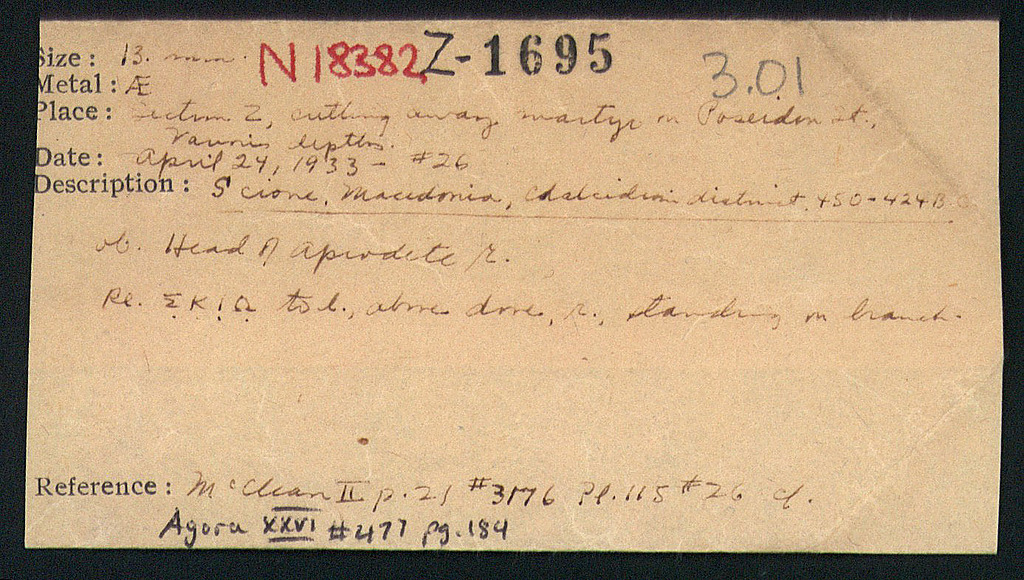 Size : 13. mm. N 18382 Z-1695 3.01
Metal : Æ
Place : Section Z, cutting away martyr on Poseidon St.,
Various depths.
Date : April 24, 1933 - #26
Description : Scione, Macedonia, Chalcidian district, 450-424 B.C.
ob. Head of Aprodete r.
Re. ΣΚΙΩ to l., above dove, r., standing on branch.
Reference : McClean II p. 21 #3176 Pl. 115 #26 cf.
Agora XXVI #477 pg. 184